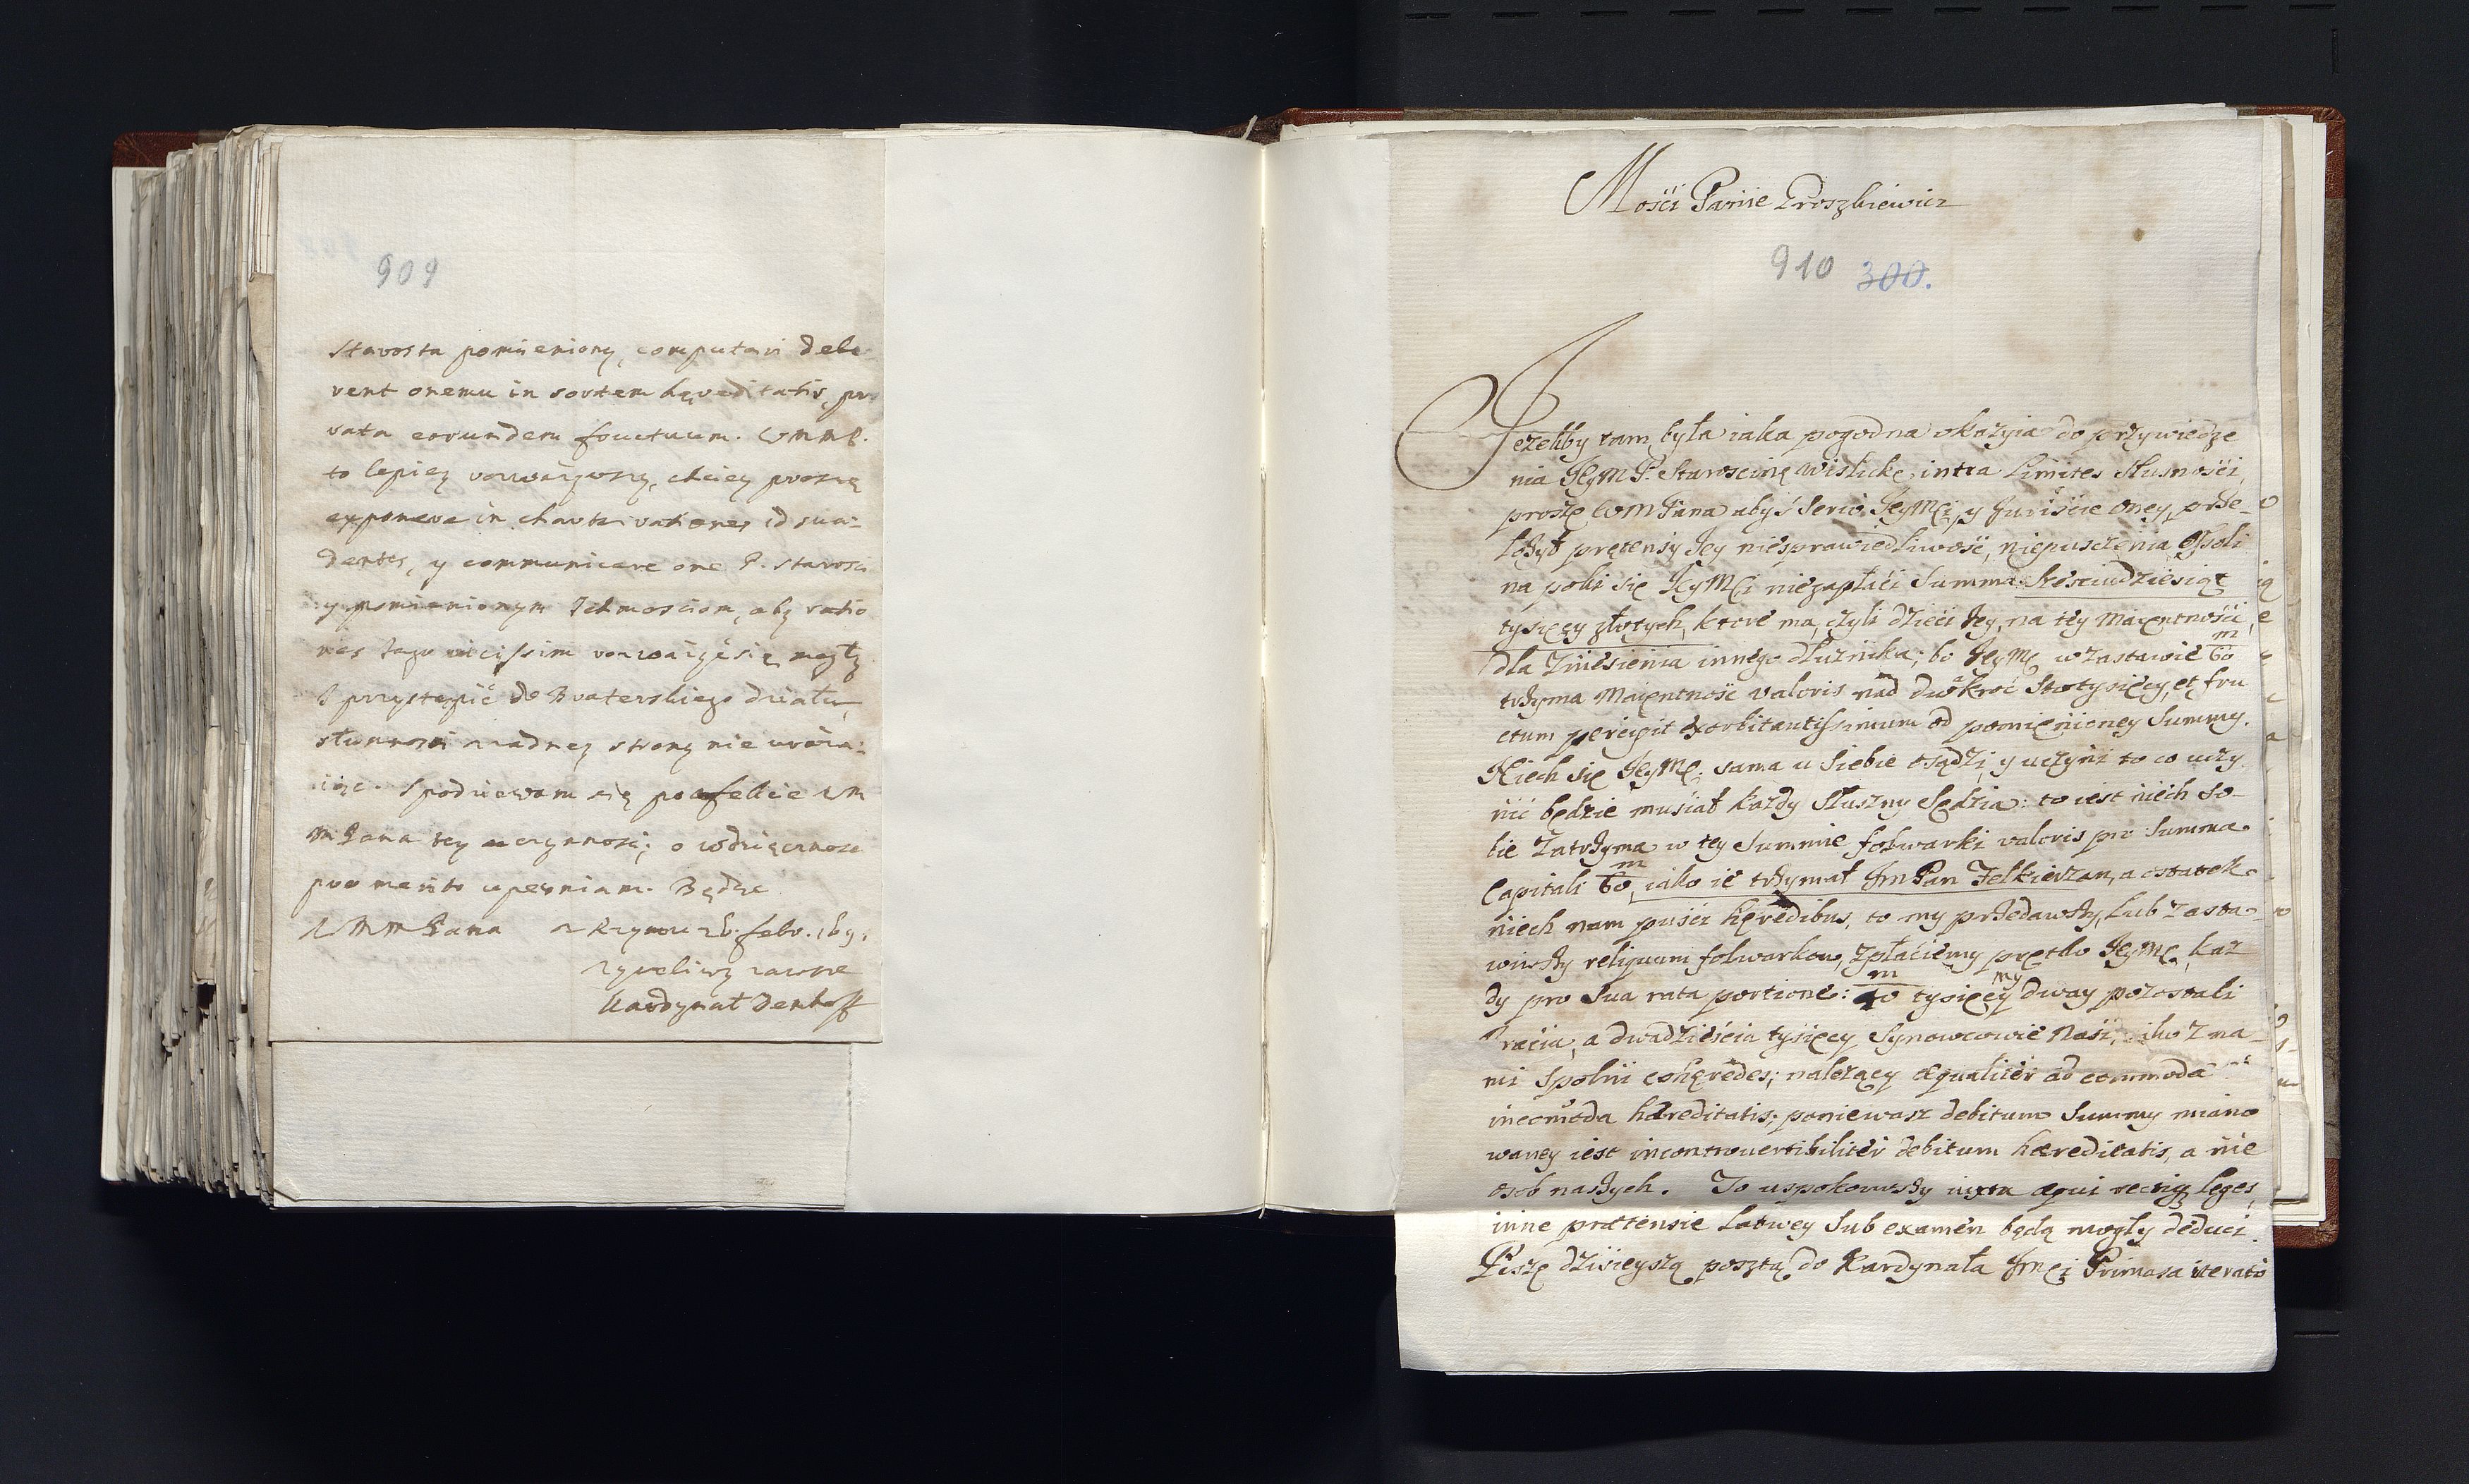 909
Starosta pomieniony, computari debe
rent onemu in sortem hęreditatis, pro
rata eorundem fructuum. WMMP.
to lepiey rozważywszy, chciey proszę
exponere in charta rationes id sua-
dentes, y communicare one P. Starosci
y pomienionym Ichmosciom, aby ratio
nes tego vicissim rozważyć się mogły
I przystępić do Braterskiego działu,
słusznosci żadney strony nie uraża-
iąc. Spodziewam się po affekcie WM
MPana tey uczynnosci; o wdzięcznosci
pro merito upewniam. Będąc
WMMPana z Rzymu 26. febr. 169
życzliwy zawsze
Kardynał Denhoff
Mości Panie Proszkiewicz
910 300.
Jezeliby tam była iaka pogodna okazyia do przywiedze
nia JeyM P. Starościnę Wislickę, intra Limites Słusności,
proszę WMPana abyś Serio JeyMci, y Juriście oney, prze-
łożył prętensiy Jey niesprawiedliwość, niepusczenia Opoli
na poki się JeyMci niezapłaci Summa Sześciudziesiąt
tysięcy złotych, ktore ma, czyli dzieci Jey, na tey Maiętności,
dla Zniesienia innego dłużnika; bo JeyMc w zastawie 60 m
trzyma Maiętność valoris nad dwakroć Stotysięcy, et fru
ctum percipit exorbitantissimum od pomienioney Summy.
Niech się JeyMc. sama u Siebie osądzi, y uczyni to co uczy
nić będzie musiał każdy Słuszny Sędzia: to iest niech So-
bie Zatrzyma w tey Summie folwarki valoris pro Summa
Capitali 60 m, iako ie trzymał Jm Pan Felkierzam, a ostatek
niech nam puści hęredibus, to my przedawszy, Lub Zasta-
wiwszy reliquum folwarkow, zpłaciemy prętko JeyMc, każ
dy pro Sua rata portione: 40 m tysięcy my dway pozostali
Bracia, a dwadzieścia tysięcy Synowcowie Nasi, iako Z na-
mi Spolni cohęredes; należący æqualiter ad commoda et
incom̃oda hæreditatis; poniewasz debitum Summy miano
waney iest incontrouertibiliter debitum hæreditatis, a nie
osob naszych. To uspokoiwszy iuxta æqui rectiq; leges,
inne prætensie Łatwey Sub examen będą mogły deduci.
Piszę dzisieyszą posztą do Kardynała Jmci Primasa iterato